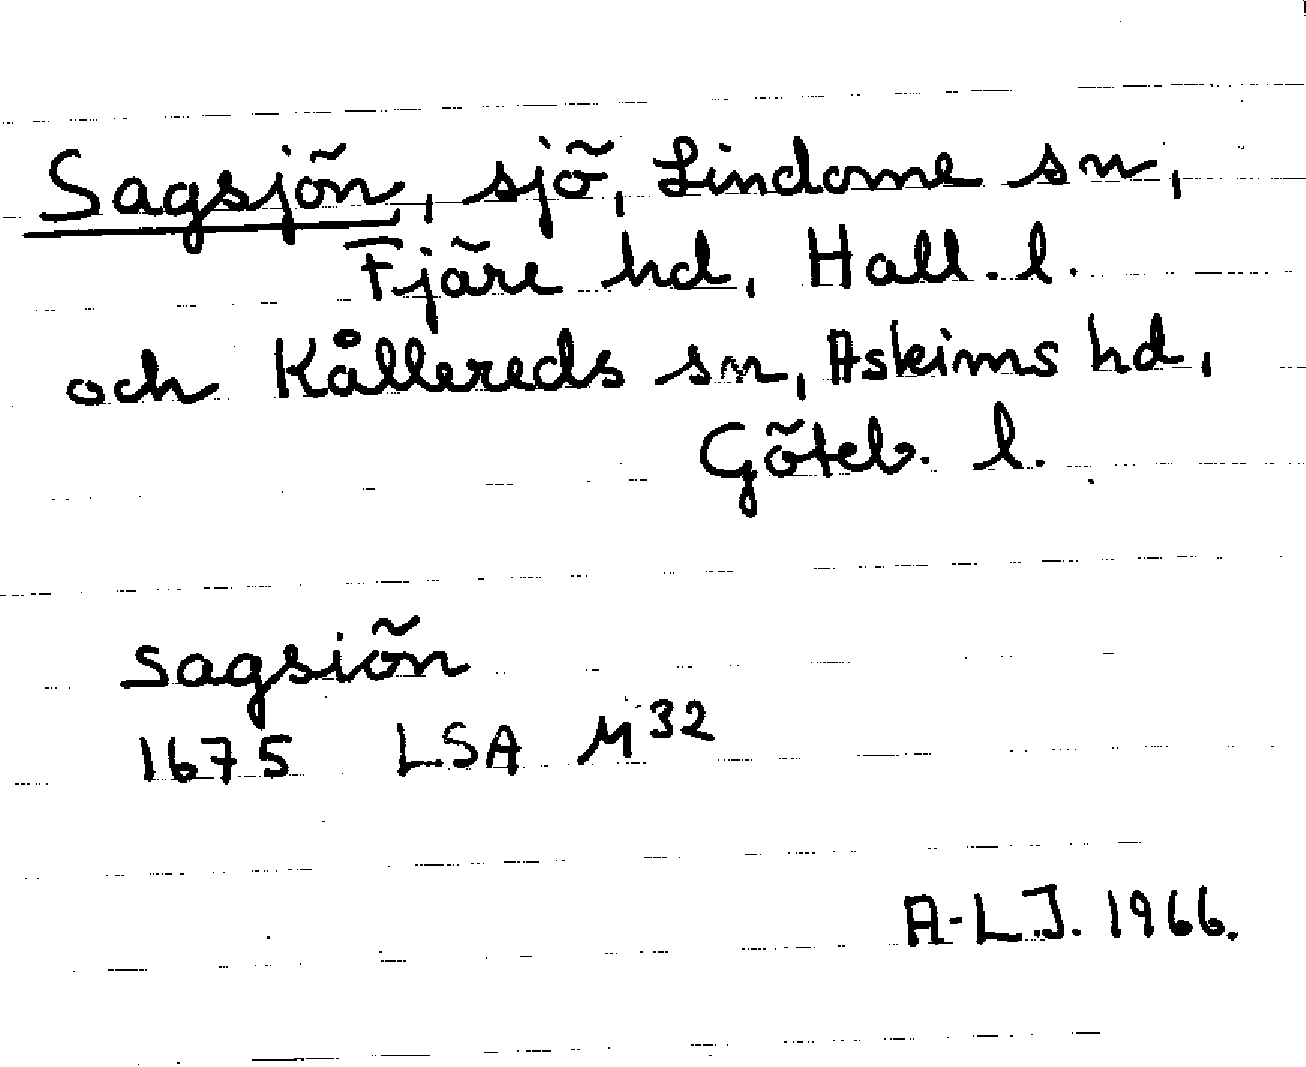 Sagsjön, sjö, Lindome sn,
Fjäre hd, Hall. l.
och Kållereds sn, Askims hd,
Göteb. l.
Sagsiön
1675 LSA M32
A-LJ. 1966.